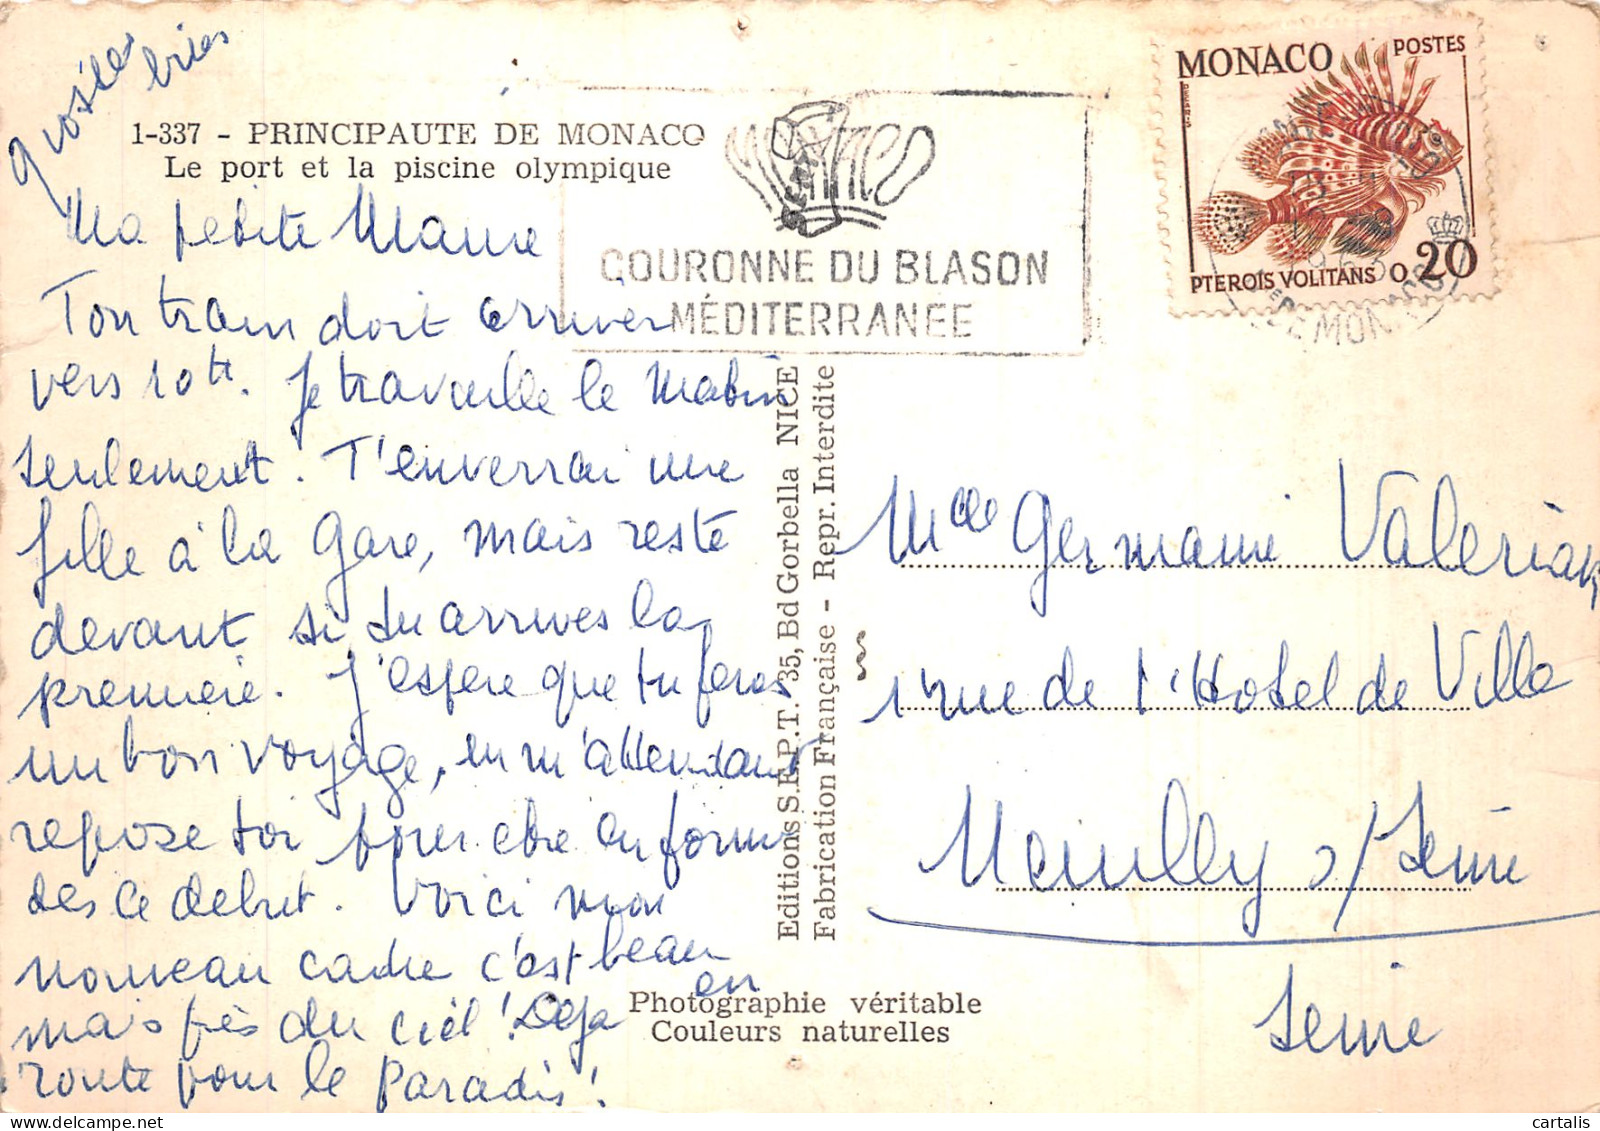 grosses
bises
1-337 - PRINCIPAUTE DE MONACO
Le port et la piscine olympique
Ma petite Mame
Ton train doit arriver
vers 10h. Je travaille le Matin
seulement. T'enverrai une
fille à la Gare, mais reste
devant si tu arrives la
première. J'espère que tu feras
un bon voyage, en m'attendant
repose toi pour être en forme
dès le début. Voici mon
nouveau cadre c'est beau
mais près du ciel! Déja en
route pour le Paradis!
MONACO
COURONNE DU BLASON
MÉDITERRANÉE
MONACO
POSTES
DECARIS
PTEROIS VOLITANS 0,20
DE MONACO
Editions S.E.P.T. 35, Bd Gorbella NICE
Fabrication Française - Repr. Interdite
Mlle Germaine Valerian
1 rue de l'Hotel de Ville
Neuilly s/ Seine
Seine
Photographie véritable
Couleurs naturelles
cartalis
delcampe.net